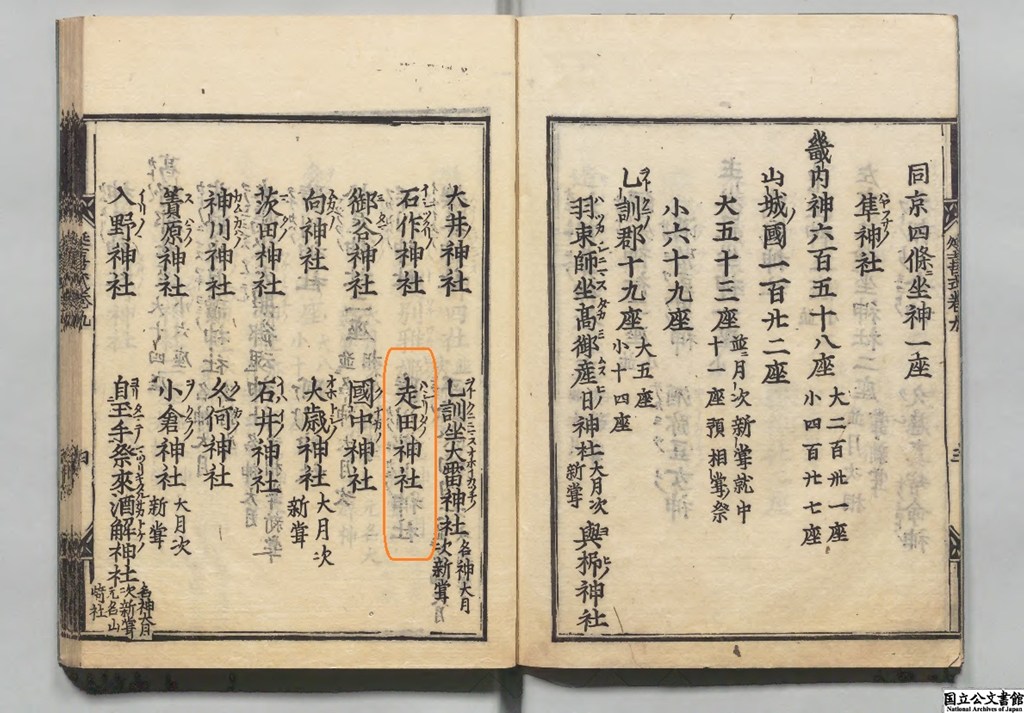 同京四條坐神一座
隼神社
畿内神六百五十八座 大二百卅一座 小四百廿七座
山城國一百廿二座
大五十三座 並月次新甞就中十一座預相甞祭
小六十九座
乙訓郡十九座 大五座 小十四座
羽束師坐高御産日神社 大月次新甞 與杼神社
大井神社 乙訓坐大雷神社 名神大月次新甞
石作神社 走田神社
御谷神社 國中神社
向神社 大歳神社 大月次新甞
茨田神社 石井神社
神川神社 久何神社
簀原神社 小倉神社 大月次新甞
入野神社 自玉手祭來酒解神社 名神大月次新甞元名山﨑社
国立公文書館
National Archives of Japan